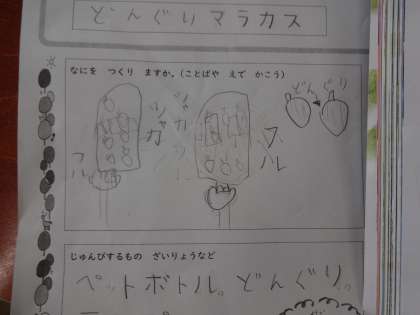 どんぐりマラカス
なにを つくり ますか。(ことばや えで かこう)
どんぐり
シャカ
シャカ
フル
フル
じゅんびするもの ざいりょうなど
ペットボトル。どんぐり。